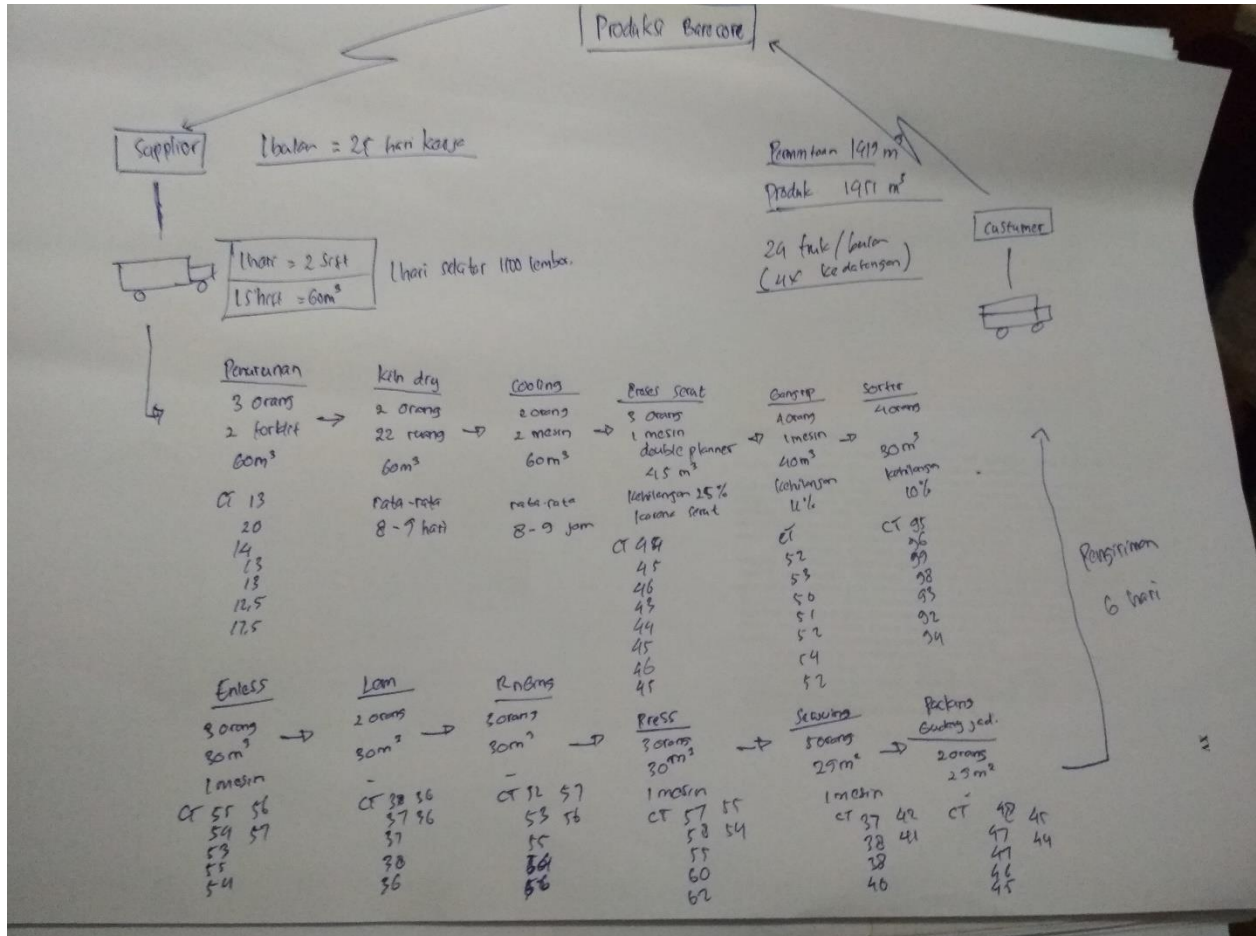 Produksi Barecore
Supplier
1 bulan = 25 hari kerja
Permintaan 1419 m³
Produk 1951 m³
24 truk/bulan
(4x kedatangan)
Custumer
1 hari = 2 sift
1 Shift = 60m³
1 hari sekitar 1100 lembar.
Penurunan
3 orang
2 forklift
60m³
CT 13
20
14
13
13
12,5
17,5
kiln dry
2 orang
22 ruang
60m³
rata-rata
8-9 hari
Cooling
2 orang
2 mesin
60m³
rata-rata
8-9 jam
Proses serut
3 orang
1 mesin
double planner
45 m³
kehilangan 25%
karena serut
CT 44
45
46
43
44
45
46
45
Gangrip
4 orang
1 mesin
40m³
kehilangan
11%
CT
52
53
50
51
52
54
52
Sortir
4 orang
30m³
kehilangan
10%
CT 95
96
99
98
93
92
94
Pengiriman
6 hari
Enless
3 orang
30m³
1 mesin
CT 55 56
54 57
53
55
54
Lem
2 orang
30m³
-
CT 38 36
37 36
37
38
36
3 orang
30m³
-
CT 52 57
53 56
55
54
56
Press
3 orang
30m³
1 mesin
CT 57 55
58 54
55
60
62
5 orang
29m²
1 mesin
CT 37 42
38 41
38
40
Packing
Gudang jad.
2 orang
29m²
CT 48 45
47 44
47
46
45